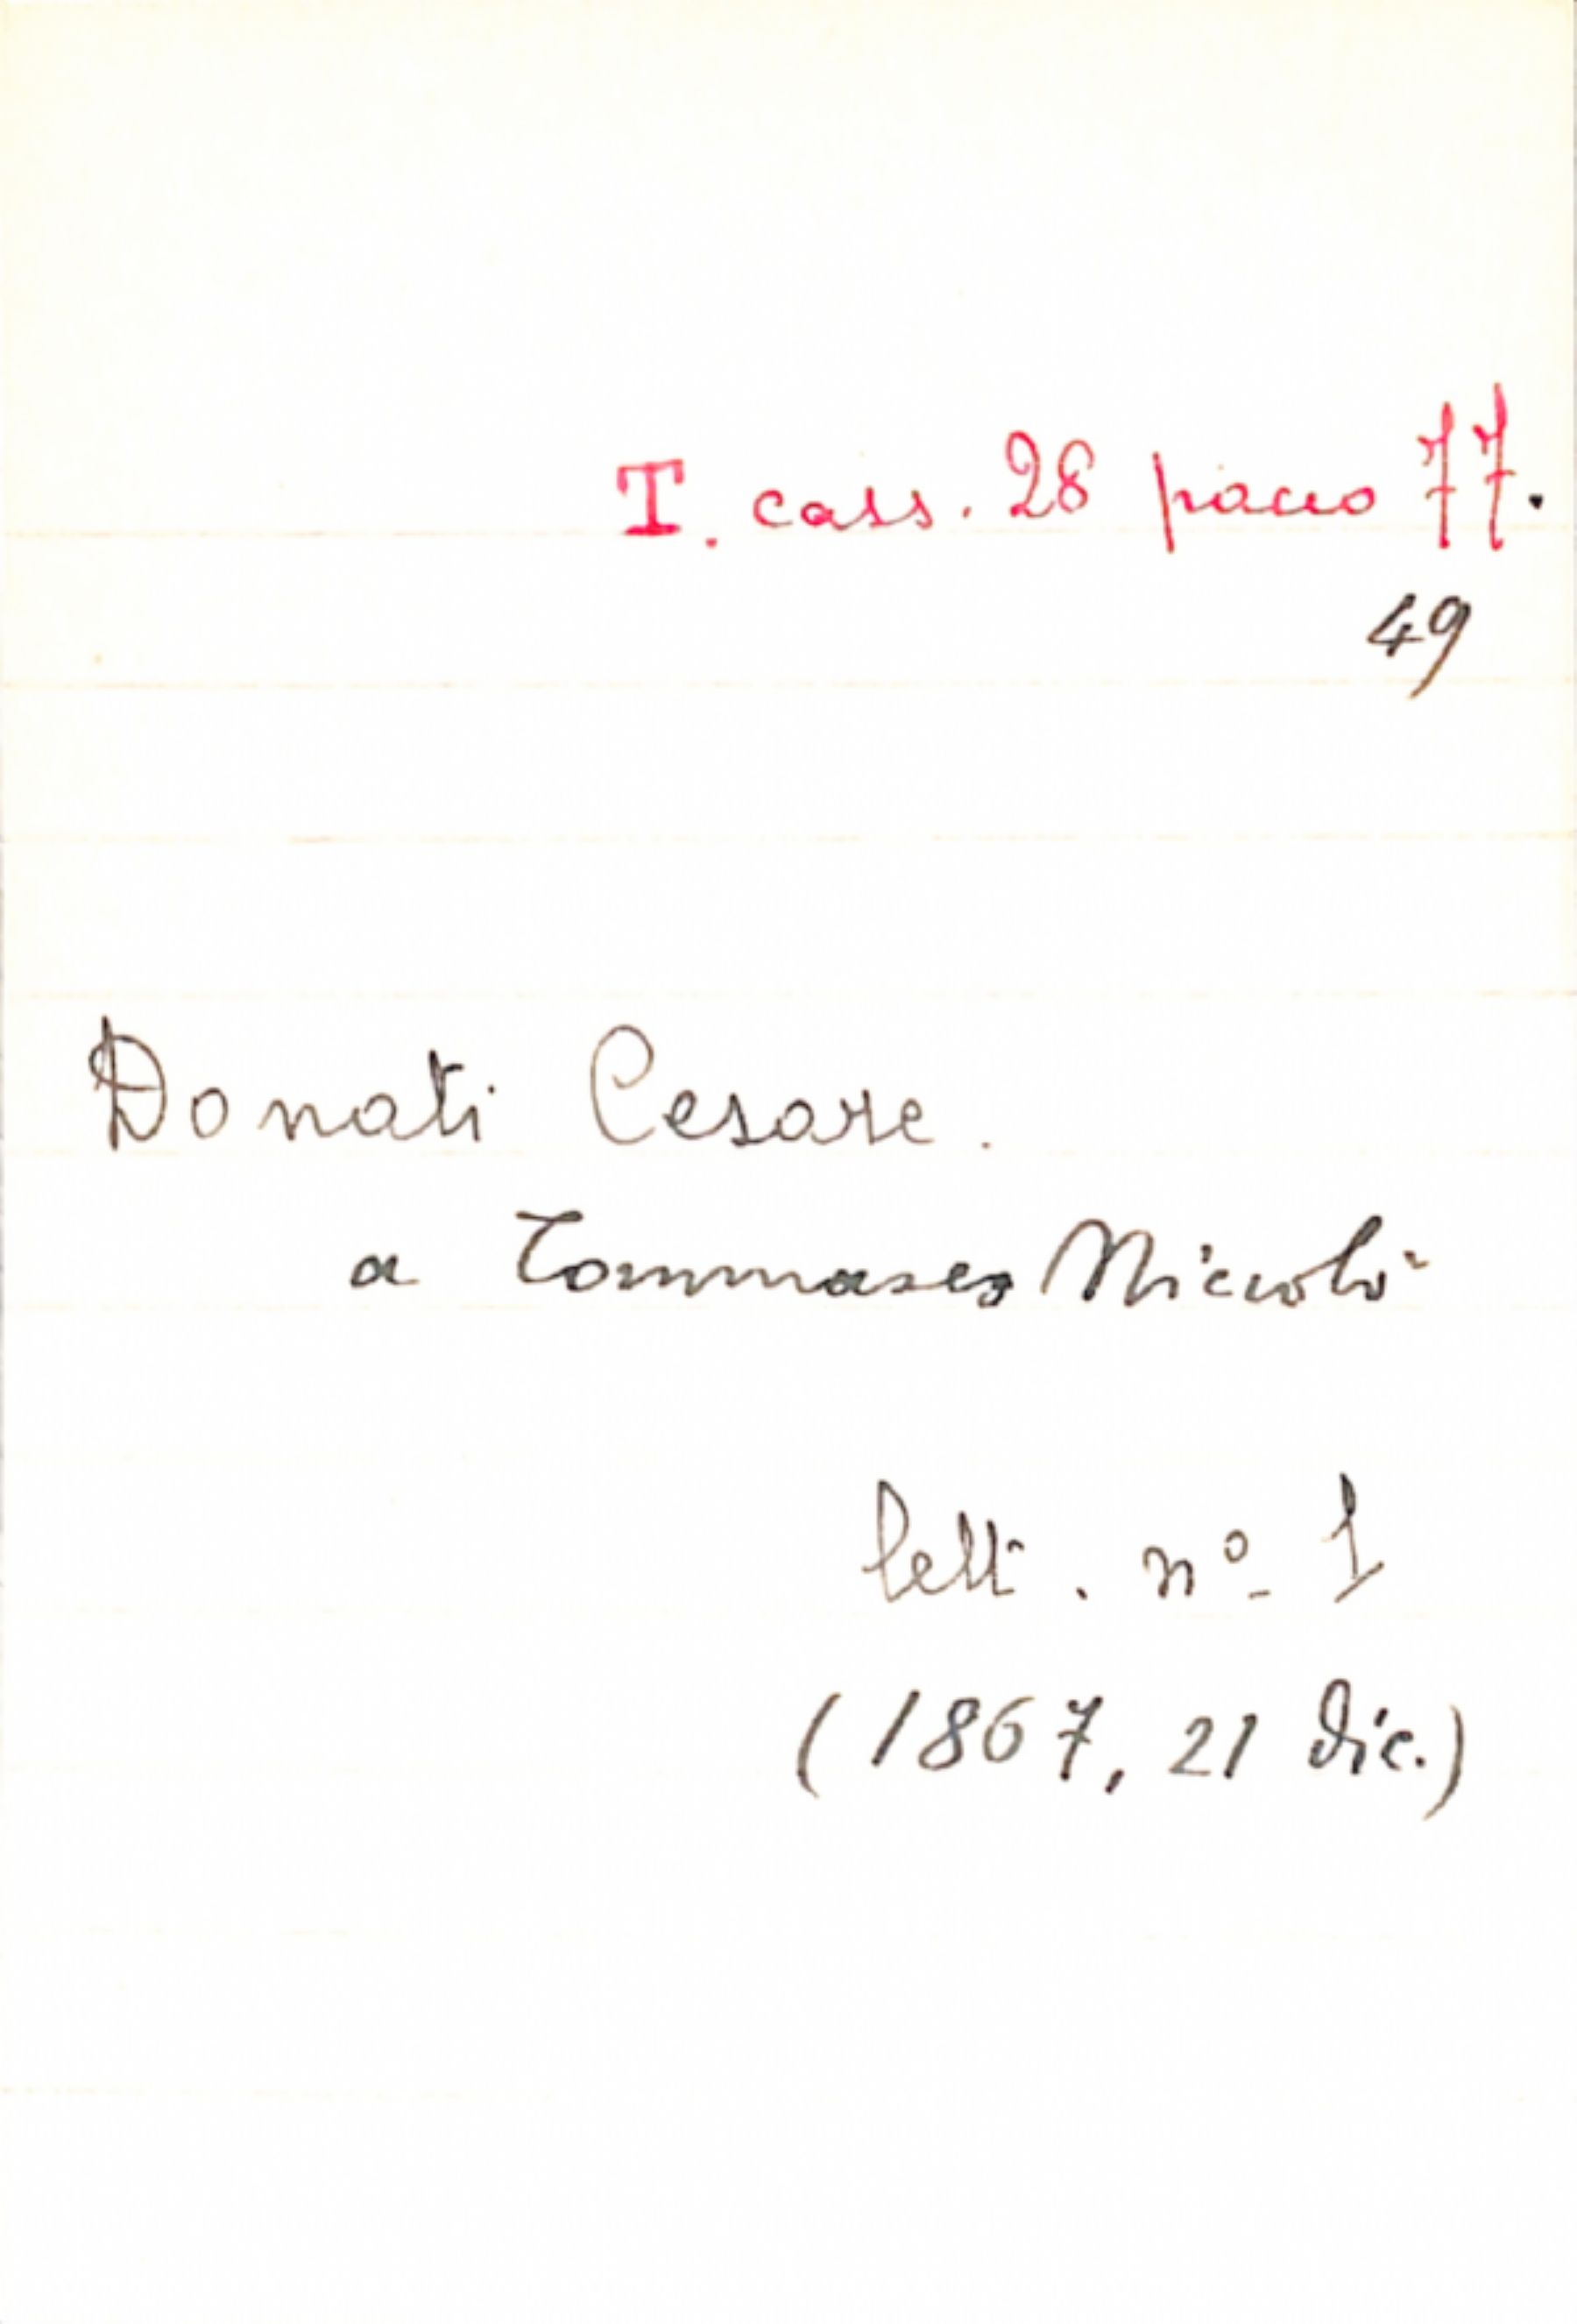 T. cass. 28 pacco 77.
49
Donati Cesare.
a Tommaseo Niccolò
lett. nº 1
(1867, 21 dic.)